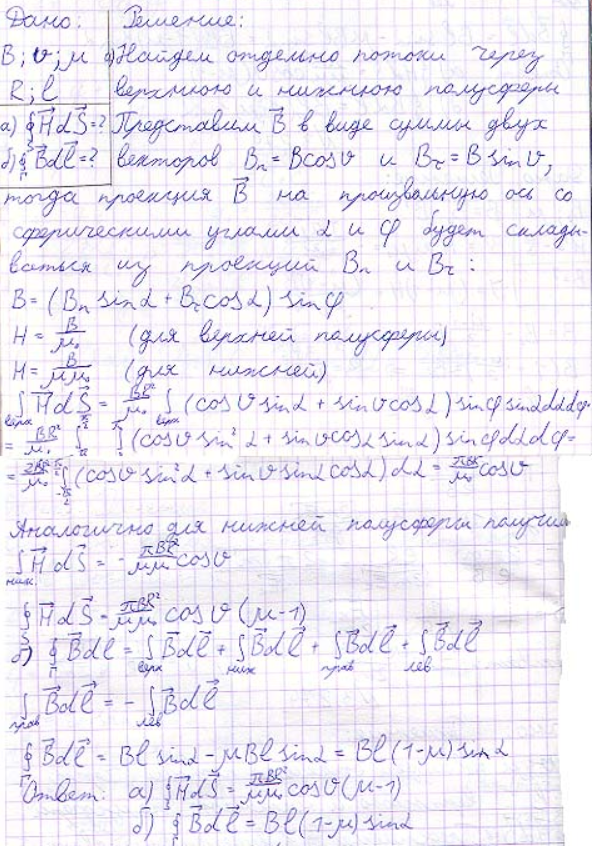 Дано: Решение:
B; υ; μ а) Найдем отдельно потоки через
R; l верхнюю и нижнюю полусферы
а) ∮_S H⃗dS⃗=? Представим B⃗ в виде суммы двух
б) ∮_Г B⃗dl⃗=? векторов Bₙ = Bcosυ и B_τ = B sinυ,
тогда проекция B⃗ на произвольную ось со
сферическими углами α и φ будет склады-
ваться из проекций Bₙ и B_τ:
B = (Bₙ sinα + B_τ cosα) sinφ
H = B/μ₀ (для верхней полусферы)
H = B/μμ₀ (для нижней)
∫_верх H⃗dS⃗ = BR²/μ₀ ∫_верх (cosυ sinα + sinυ cosα) sinφ sinα dα dφ =
= BR²/μ₀ ∫∫ (cosυ sin²α + sinυ cosα sinα) sinφ dα dφ =
= 2BR²/μ₀ ∫_{-π/2}^{π/2} (cosυ sin²α + sinυ sinα cosα) dα = πBR²/μ₀ cosυ
Аналогично для нижней полусферы получим
∫_ниж. H⃗dS⃗ = - πBR²/μμ₀ cosυ
∮_S H⃗dS⃗ = πBR²/μμ₀ cosυ (μ-1)
б) ∮_Г B⃗dl = ∫_верх B⃗dl⃗ + ∫_ниж B⃗dl⃗ + ∫_прав B⃗dl⃗ + ∫_лев B⃗dl⃗
∫_прав B⃗dl⃗ = - ∫_лев B⃗dl⃗
∮_Г B⃗dl⃗ = Bl sinα - μBl sinα = Bl(1-μ) sinα
Ответ: а) ∮_S H⃗dS⃗ = πBR²/μμ₀ cosυ (μ-1)
б) ∮ B⃗dl⃗ = Bl(1-μ) sinα